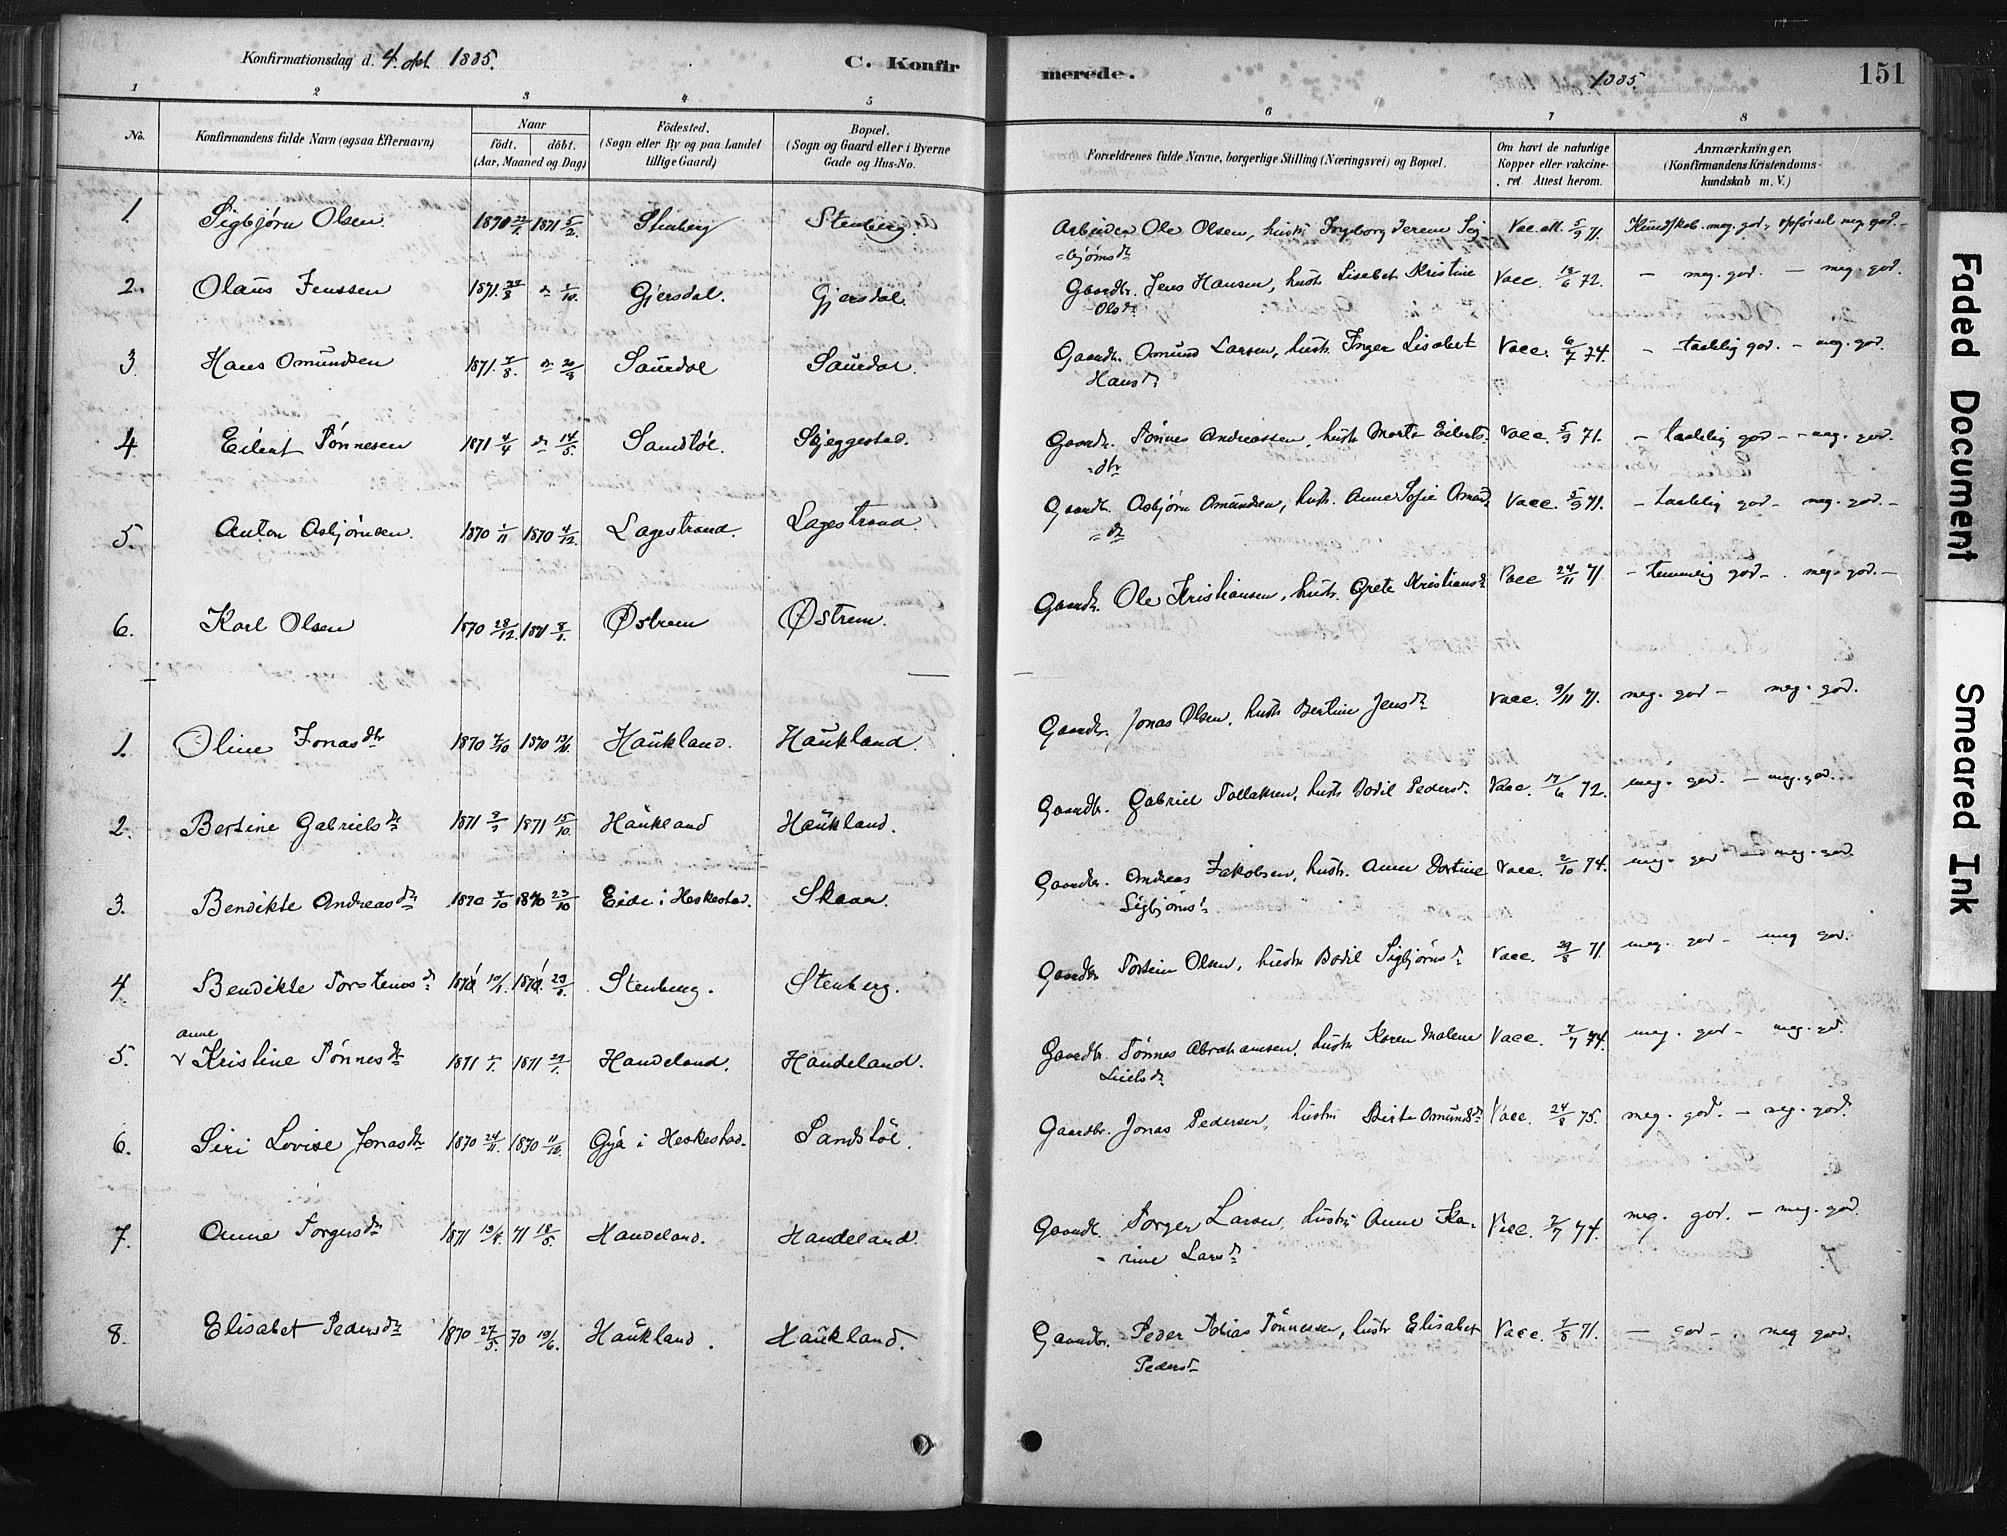 Konfirmationsdag d. 4. Okt. 1885.
C. Konfirmerede.
1885.
151
1 2 3 4 5 6 7 8
No.
Konfirmandens fulde Navn (ogsaa Efternavn)
Naar
födt. döbt.
(Aar, Maaned og Dag)
Födested.
(Sogn eller By og paa Landet
tillige Gaard)
Bopæl.
(Sogn og Gaard eller i Byerne
Gade og Hus-No.
Forældrenes fulde Navne, borgerlige Stilling (Næringsvei) og Bopæl.
Om havt de naturlige
Kopper eller vakcine-
ret. Attest herom.
Anmærkninger.
(Konfirmandens Kristendoms-
kundskab m. V.)
1. Sigbjørn Olsen 1870 22/1. 1871 5/2. Stenberg Stenberg Arbeider Ole Olsen, hustr. Ingborg Serene Sig- Vac. att. 5/9 71. Kundskab. meg. god, opførsel meg god. -
=bjørnsdtr
2. Olaus Jenssen 1871. 24/8 do 1/10. Gjersdal. Gjersdal Gaardbr. Jens Hansen, hustr. Lisabet Kristine Vacc. 19/6 72. - meg. god. - meg. god.
Olsdr
3. Hans Omundsen 1871. 7/8. do 20/8 Saurdal Saurdal. Gaardbr. Omund Larsen, hustr. Inger Lisabet Vacc. 6/7 74. - taalelig god. - meg. god.
Hansdr
4. Eilert Tønnesen 1871 4/4 do 14/5. Sandtøl. Skjeggestad. Gaardbr. Tønnes Andreassen, hustr. Marta Eilerts- Vacc. 5/9 71. - taalelig god - - meg. god.
=dtr
5. Anton Asbjørnsen. 1870 1/11 1870 4/12. Lagestrand. Lagestrand. Gaardbr. Asbjørn Omundsen, hustr. Anne Sofie Omunds Vacc. 5/9 71. - taalelig god - meg. god. -
=dr
6. Karl Olsen 1870 28/12. 1871 8/1. Østrem Østrem. Gaardbr. Ole Kristiansen, hustr. Grete Kristiansdr Vacc 24/11 71. - temmelig god - . meg. god. -
1. Oline Jonasdtr 1870 7/10 1870 13/11. Haukland. Haukland. Gaardbr. Jonas Olsen, hustr. Bertine Jensdr Vacc. 9/11 71. meg. god - meg. god.
2. Bertine Gabrielsdr 1871 9/9 1871 15/10. Haukland Haukland. Gaardbr. Gabriel Tollaksen, hustr. Bodil Pedersdr. Vacc. 17/6 72. meg. god. - meg. god.
3. Bendikte Andreasdr 1870 7/10 1870 23/10 Eide i Heskestad. Skaar. Gaardbr. Andreas Jakobsen, hustr. Anne Dortine Vacc. 2/10 74. meg. god - meg. god
Sigbjørnsdr
4 Bendikte Torstensdr 1871 10/1. 1871 29/1. Stenberg. Stenberg. Gaardbr. Torstein Olsen, hustr. Bodil Sigbjørnsdr Vacc. 29/8 71. meg. god - meg god.
Anne
5. v Kristine Tønnesdr 1871 1/1. 1871 29/1. Haudeland. Haudeland. Gaardbr. Tønnes Abrahamsen, hustr. Karen Malene Vacc. 7/7 74. meg. god - meg. gd.
6. Siri Lovise Jonasdtr 1870 24/11. 1870 11/12. Gya i Heskestad. Sandtøl. Gaardbr. Jonas Pedersen, hustru Berta Omundsdr Vacc. 24/8 75. meg. god. - meg. god.
7. Anne Torgersdr 1871 19/4. 71 18/5. Haudeland. Haudeland. Gaardbr. Torger Larsen, hustru Anne Ka- Vacc. 7/7 74. meg. god. - meg. god.
- rine Larsdr
8. Elisabet Pedersdr 1870 27/5. 70 19/6. Haukland. Haukland. Gaardbr. Peder Tobias Tønnesen, hustr. Elisabet Vacc. 1/8 71. - god - . meg god.
Pedersdr
Faded Document
Smeared Ink